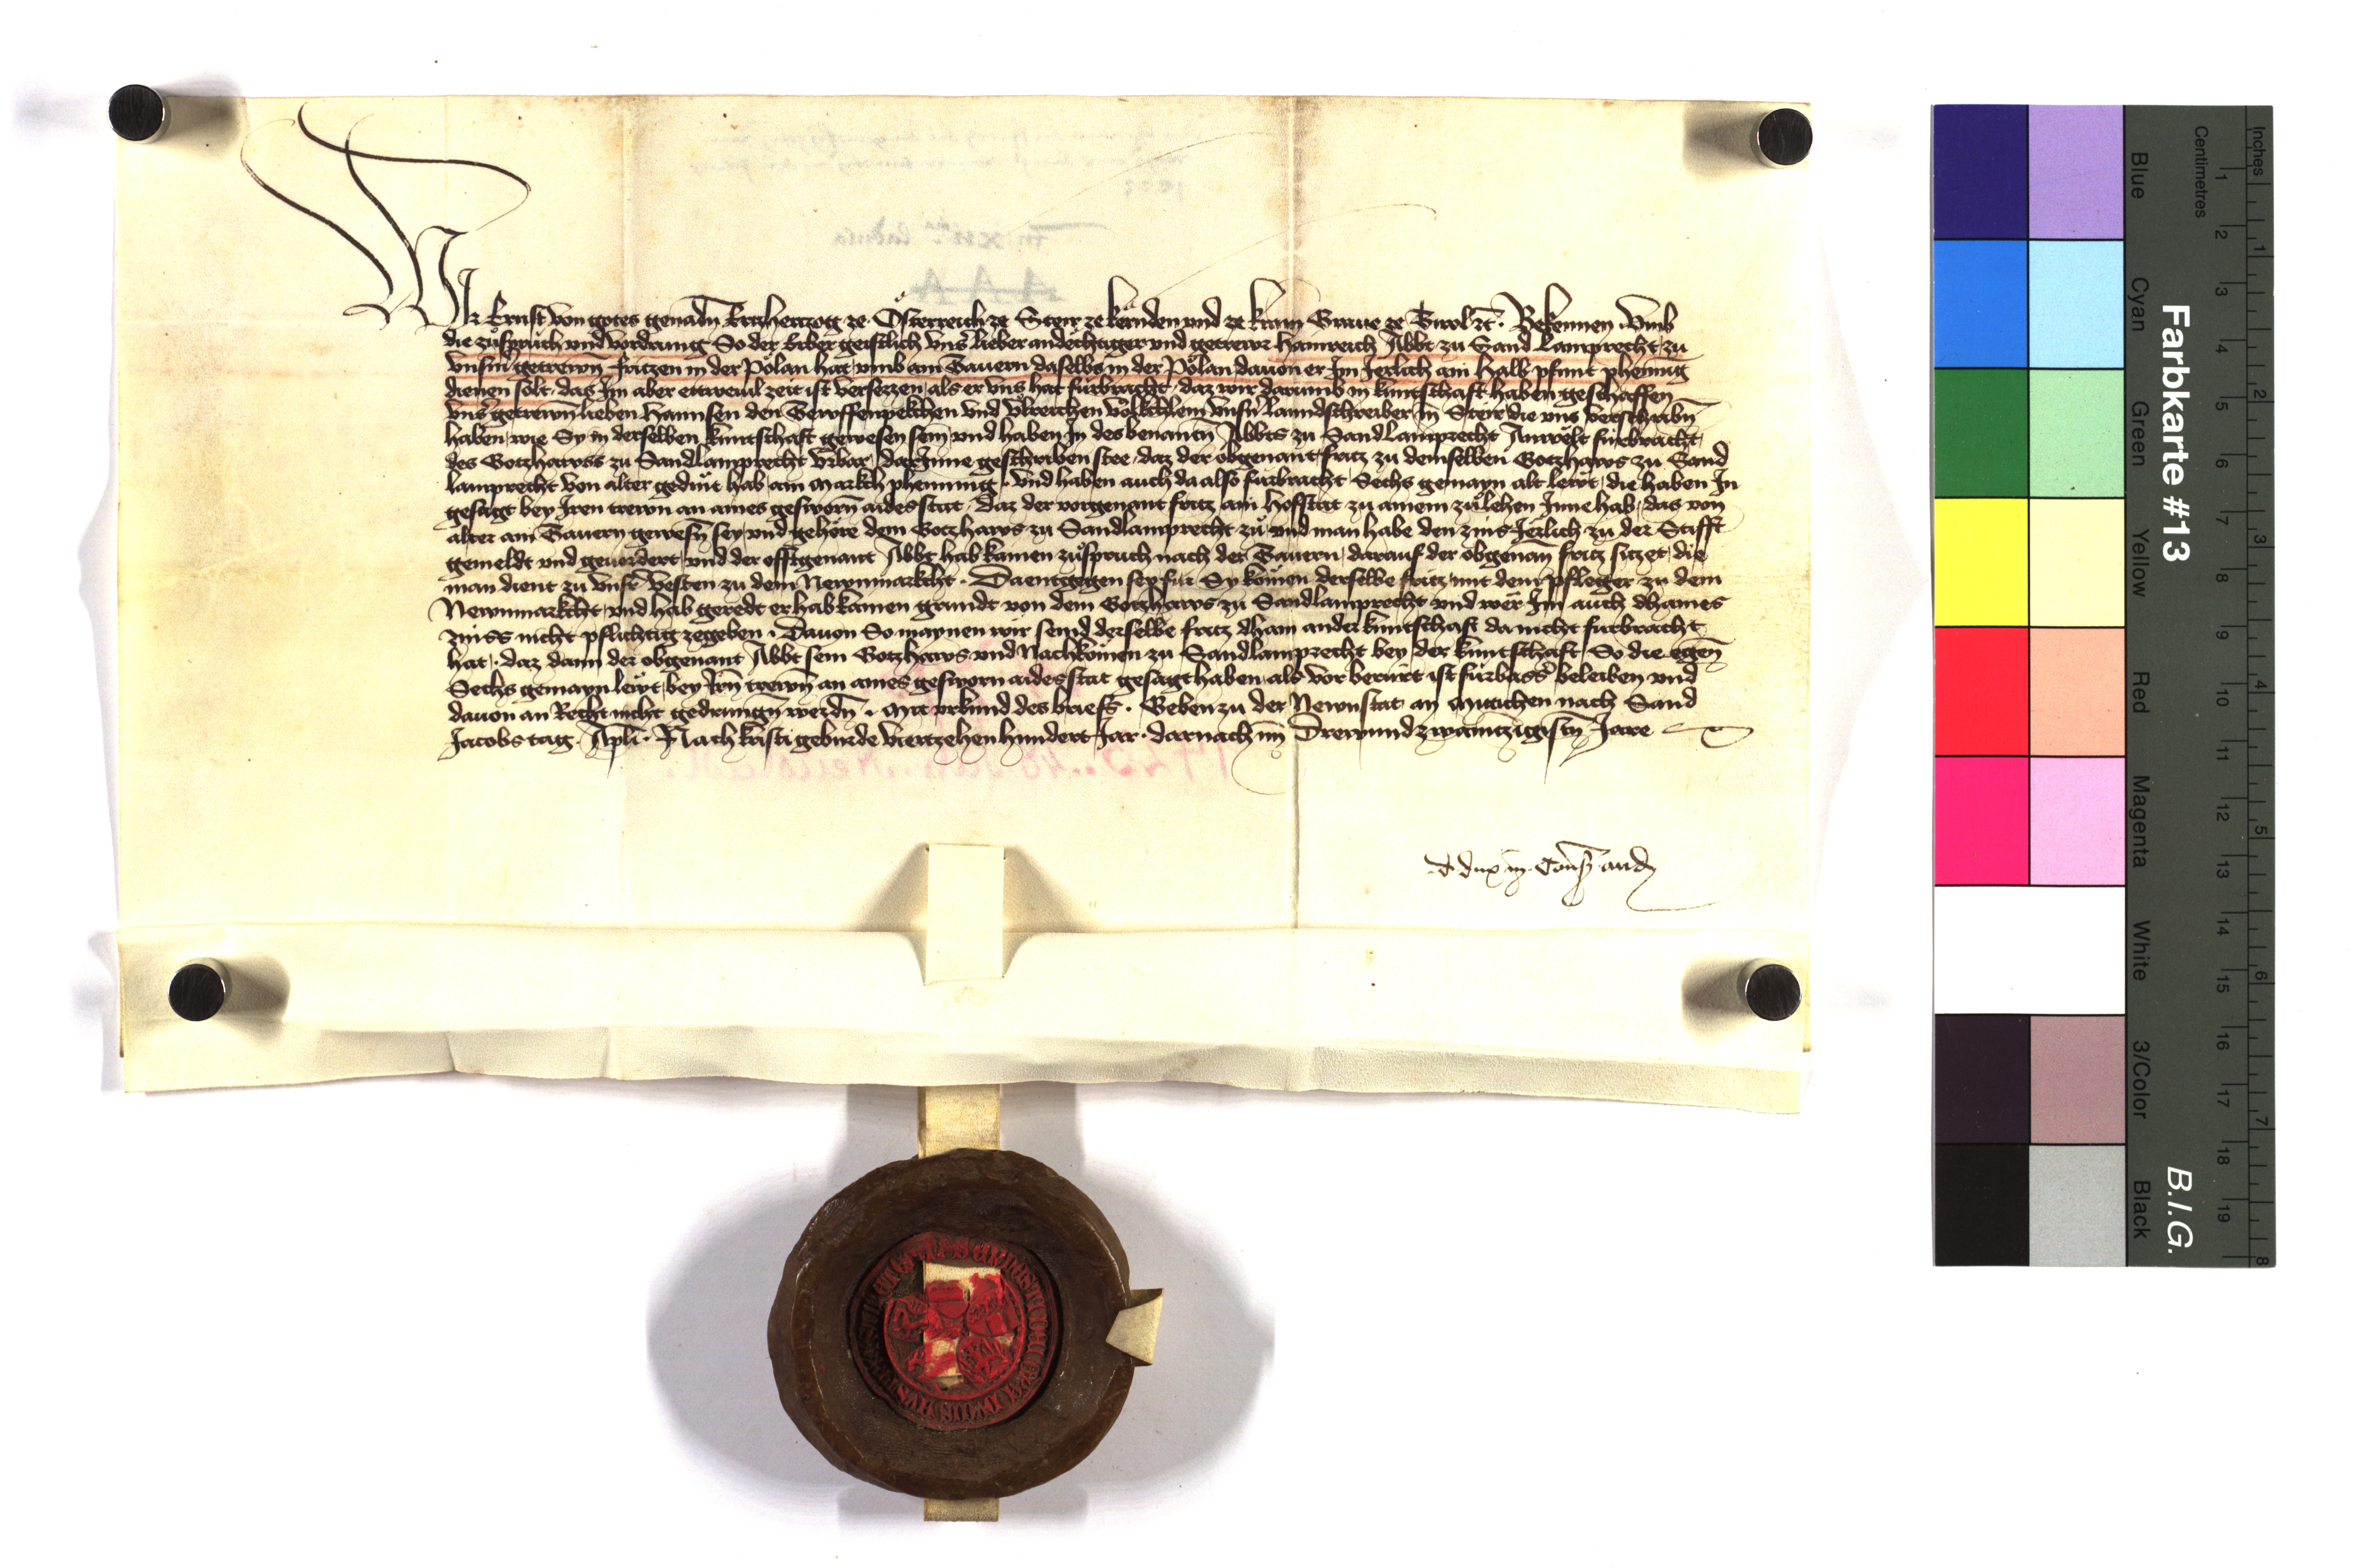 Wir Ernst von gotes genadn Ertzhertzog ze Österreich ze Steir ze kernden und ze krain Graue ze Tirol etc. Bekennen. Vmb
die zůspruch und vordrung So der Erber geistlich vns̄ lieber andechtiger und getrewr Hainreich Abbt zu Sand Lamprecht zu
vnsm̄ getrewn̄ fritzen in der Pölan hat vmb ain Tauern daselbs in der Pölan dauon er Im Jerlich ain halb pfunt phennig
dienen solt. das Im aber ettweuil zeit ist versezzen als er vns hat fürbracht. daz wir darumb in kuntschaft haben geschaffen
vns̄ getrewn̄ lieben Hannsen den und vlreichen völkchlein vnsn̄ lanndschreiber in Steir die vns verschribn̄
haben wie Sy in derselben kuntschaft gewesen sein und haben In des benantn̄ Abbts zu Sandlamprecht Anwelt fürbracht
des Gotzhawss zu Sandlamprecht vrbar darInne geschriben stee. daz der obgenant fritz zu demselben Gotzhaws zu Sand
lamprecht von alter gedint hab ain markch phennnig. vnd haben auch da also fürbracht Sechs gemayn alt lewt die haben In
gesagt bey Iren trewn an aines gesworn̄ aides stat. daz der vorgenant fritz ain Hofstat zu ainem zůlehen Inne hab. das von
alter ain Tauern gewesn̄ sey und gehöre dem Gotzhaws zu Sandlamprecht zů und man habe den zins Jerlich zu der Stifft
gemeldt und geuordert und der offtgenant Abbt hab kainen zůspruch nach der Tauern darauf der obgenan̄ fritz sitzet die
man dient zu vnsr̄ vesten zu dem Newnmarkcht. Daentgegen sey für Sy komen derselbe fritz mit dem phleger zu dem
Newnmarkcht und hab geredt er hab kainen grundt von dem Gotzhaws zu Sandlamprecht und wer Im auch dhaines
zinss nicht pflichtig zegeben. Dauon So maynen wir seind derselbe fritz dhain ander kuntschaft da nicht fürbracht
hat. daz dann der obgenant Abbt sein Gotzhaws und Nachkomen zu Sandlamprecht bey der kuntschaft So die egen̄
Sechs gemayn lewt bey Irn̄ trewn̄ an aines gesworn aides stat gesagt haben als vor berürt ist fürbass beleiben und
dauon an Recht nicht gedrungn̄ werdn̄. Mit vrkund des briefs. Geben zu der Newnstat an Mitichen nach Sand
Jacobs tag. Apli. Nach kristi geburde viertzehenhundert Jar. darnach im Drewundzwaintzigistn̄ Jare
d. dux in Cons.
Farbkarte #13
B.I.G.
Centimetres
Inches
1 2 3 4 5 6 7 8 9 10 11 12 13 14 15 16 17 18 19
1 2 3 4 5 6 7 8
Blue
Cyan
Green
Yellow
Red
Magenta
White
3/Color
Black